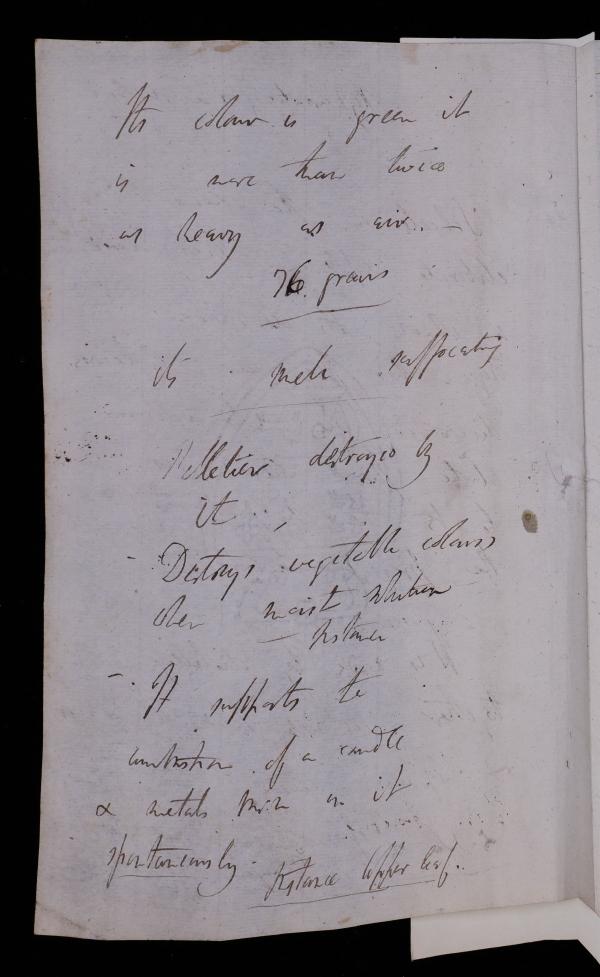 Its colour is green it
is more than twice
as heavy as air. —
76. grains
its smell suffocating
Pelletier destroyed by
it
- Destroys vegetable colours
when moist solution
Instance
- It supports the
combustion of a candle
& metals burn in it
spontaneously. Instance Copper leaf.